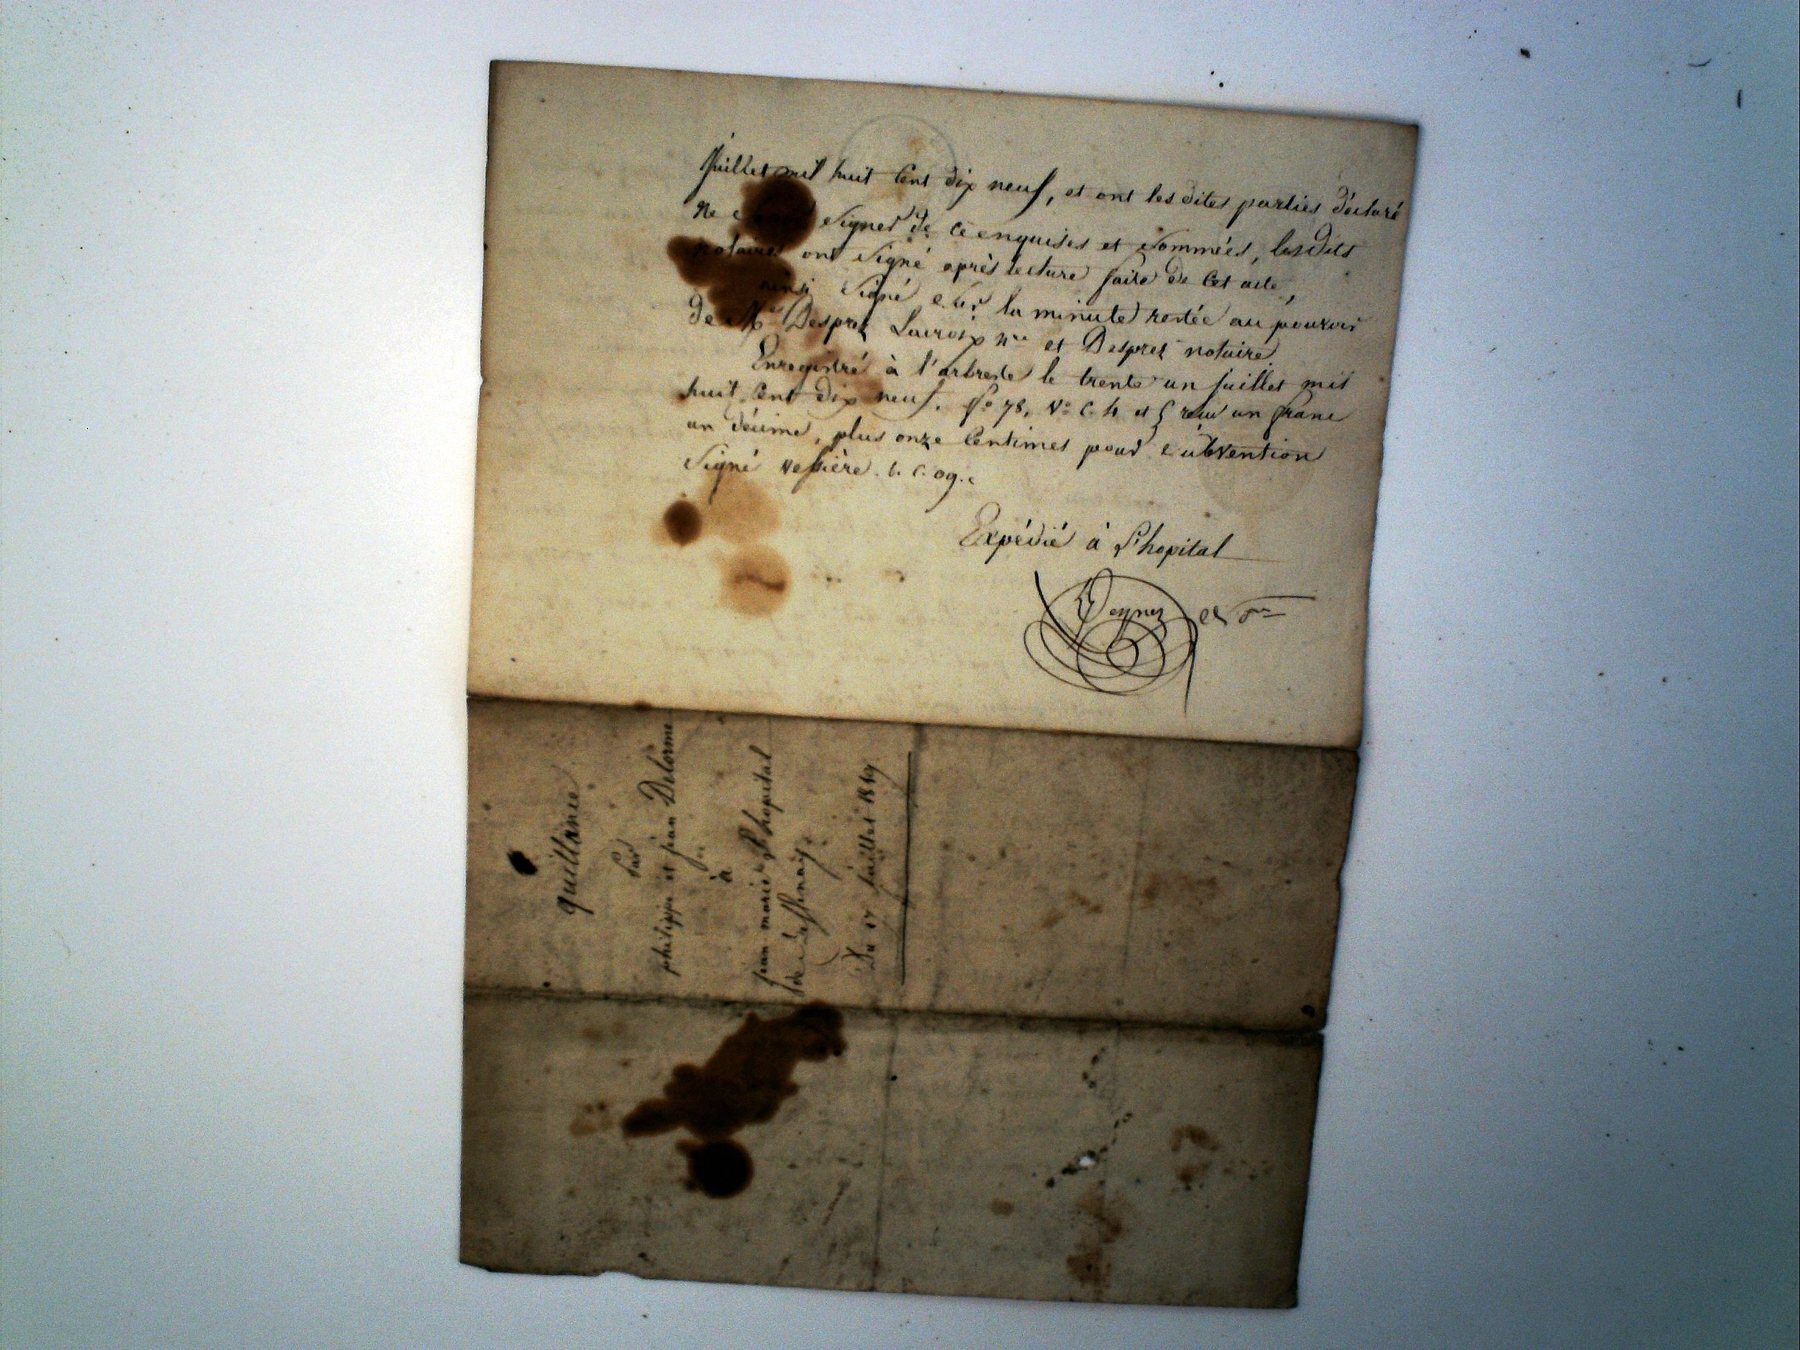 Juillet mil huit Cent dix neuf, et ont les dites parties déclaré
ne signer de ce enquises et sommées, lesdits
notaires ont signé après lecture faite de cet acte,
ainsi signé sur la minute restée au pouvoir
de Me Desprez Lacroix nre et Desprez notaire
Enregistré à l'arbresle le trente un juillet mil
huit Cent dix neuf. fo 78, Vo C. 4 et 5 reçu un franc
un décime, plus onze Centimes pour subvention
signé vessière.
Expédié à Lhopital
Desprez
quittance
par
philippe et jean Delorme
à
jean marie Lhopital
Du 17 Juillet 1819